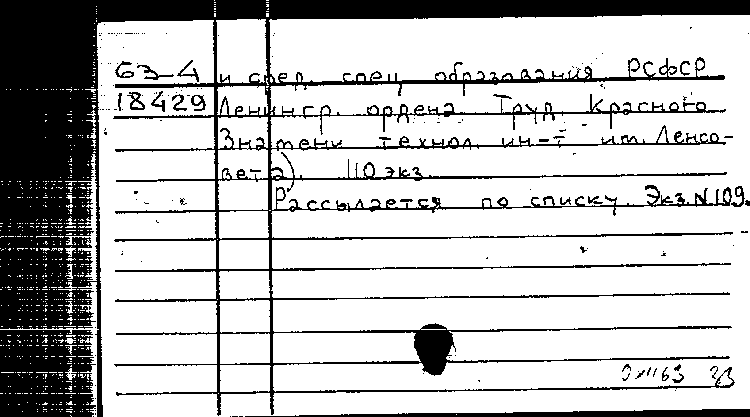 63-4 и сред. спец образования РСФСР
18429 Ленингр. ордена Труд. Красного
Знамени технол. ин-т им. Ленсо-
вета). 110 экз.
Рассылается по списку. Экз. N 109.